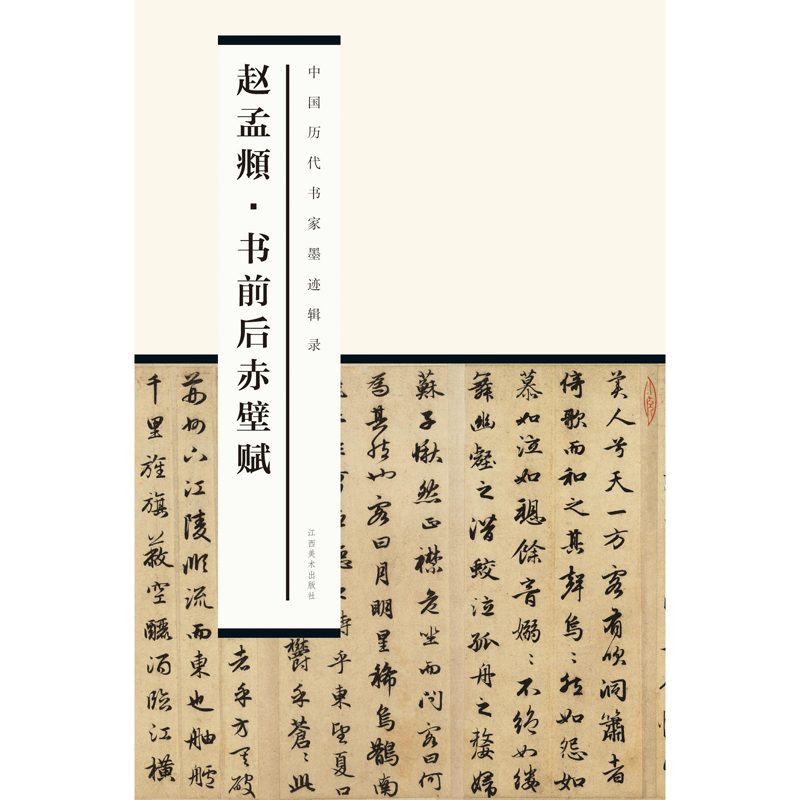 中国历代书家墨迹辑录
赵孟頫·书前后赤壁赋
江西美术出版社
美人兮天一方客有吹洞箫者
倚歌而和之其聲烏〻然如怨如
慕如泣如聽餘音嫋〻不绝如缕
舞幽壑之潜蛟泣孤舟之嫠婦
蘇子愀然正襟危坐而问客曰何
爲其然也客曰月明星稀烏鵲南
乎東望夏口
欝乎蒼〻此
者乎方其破
荊州下江陵順流而東也舳艫
千里旌旗蔽空釃酒臨江横